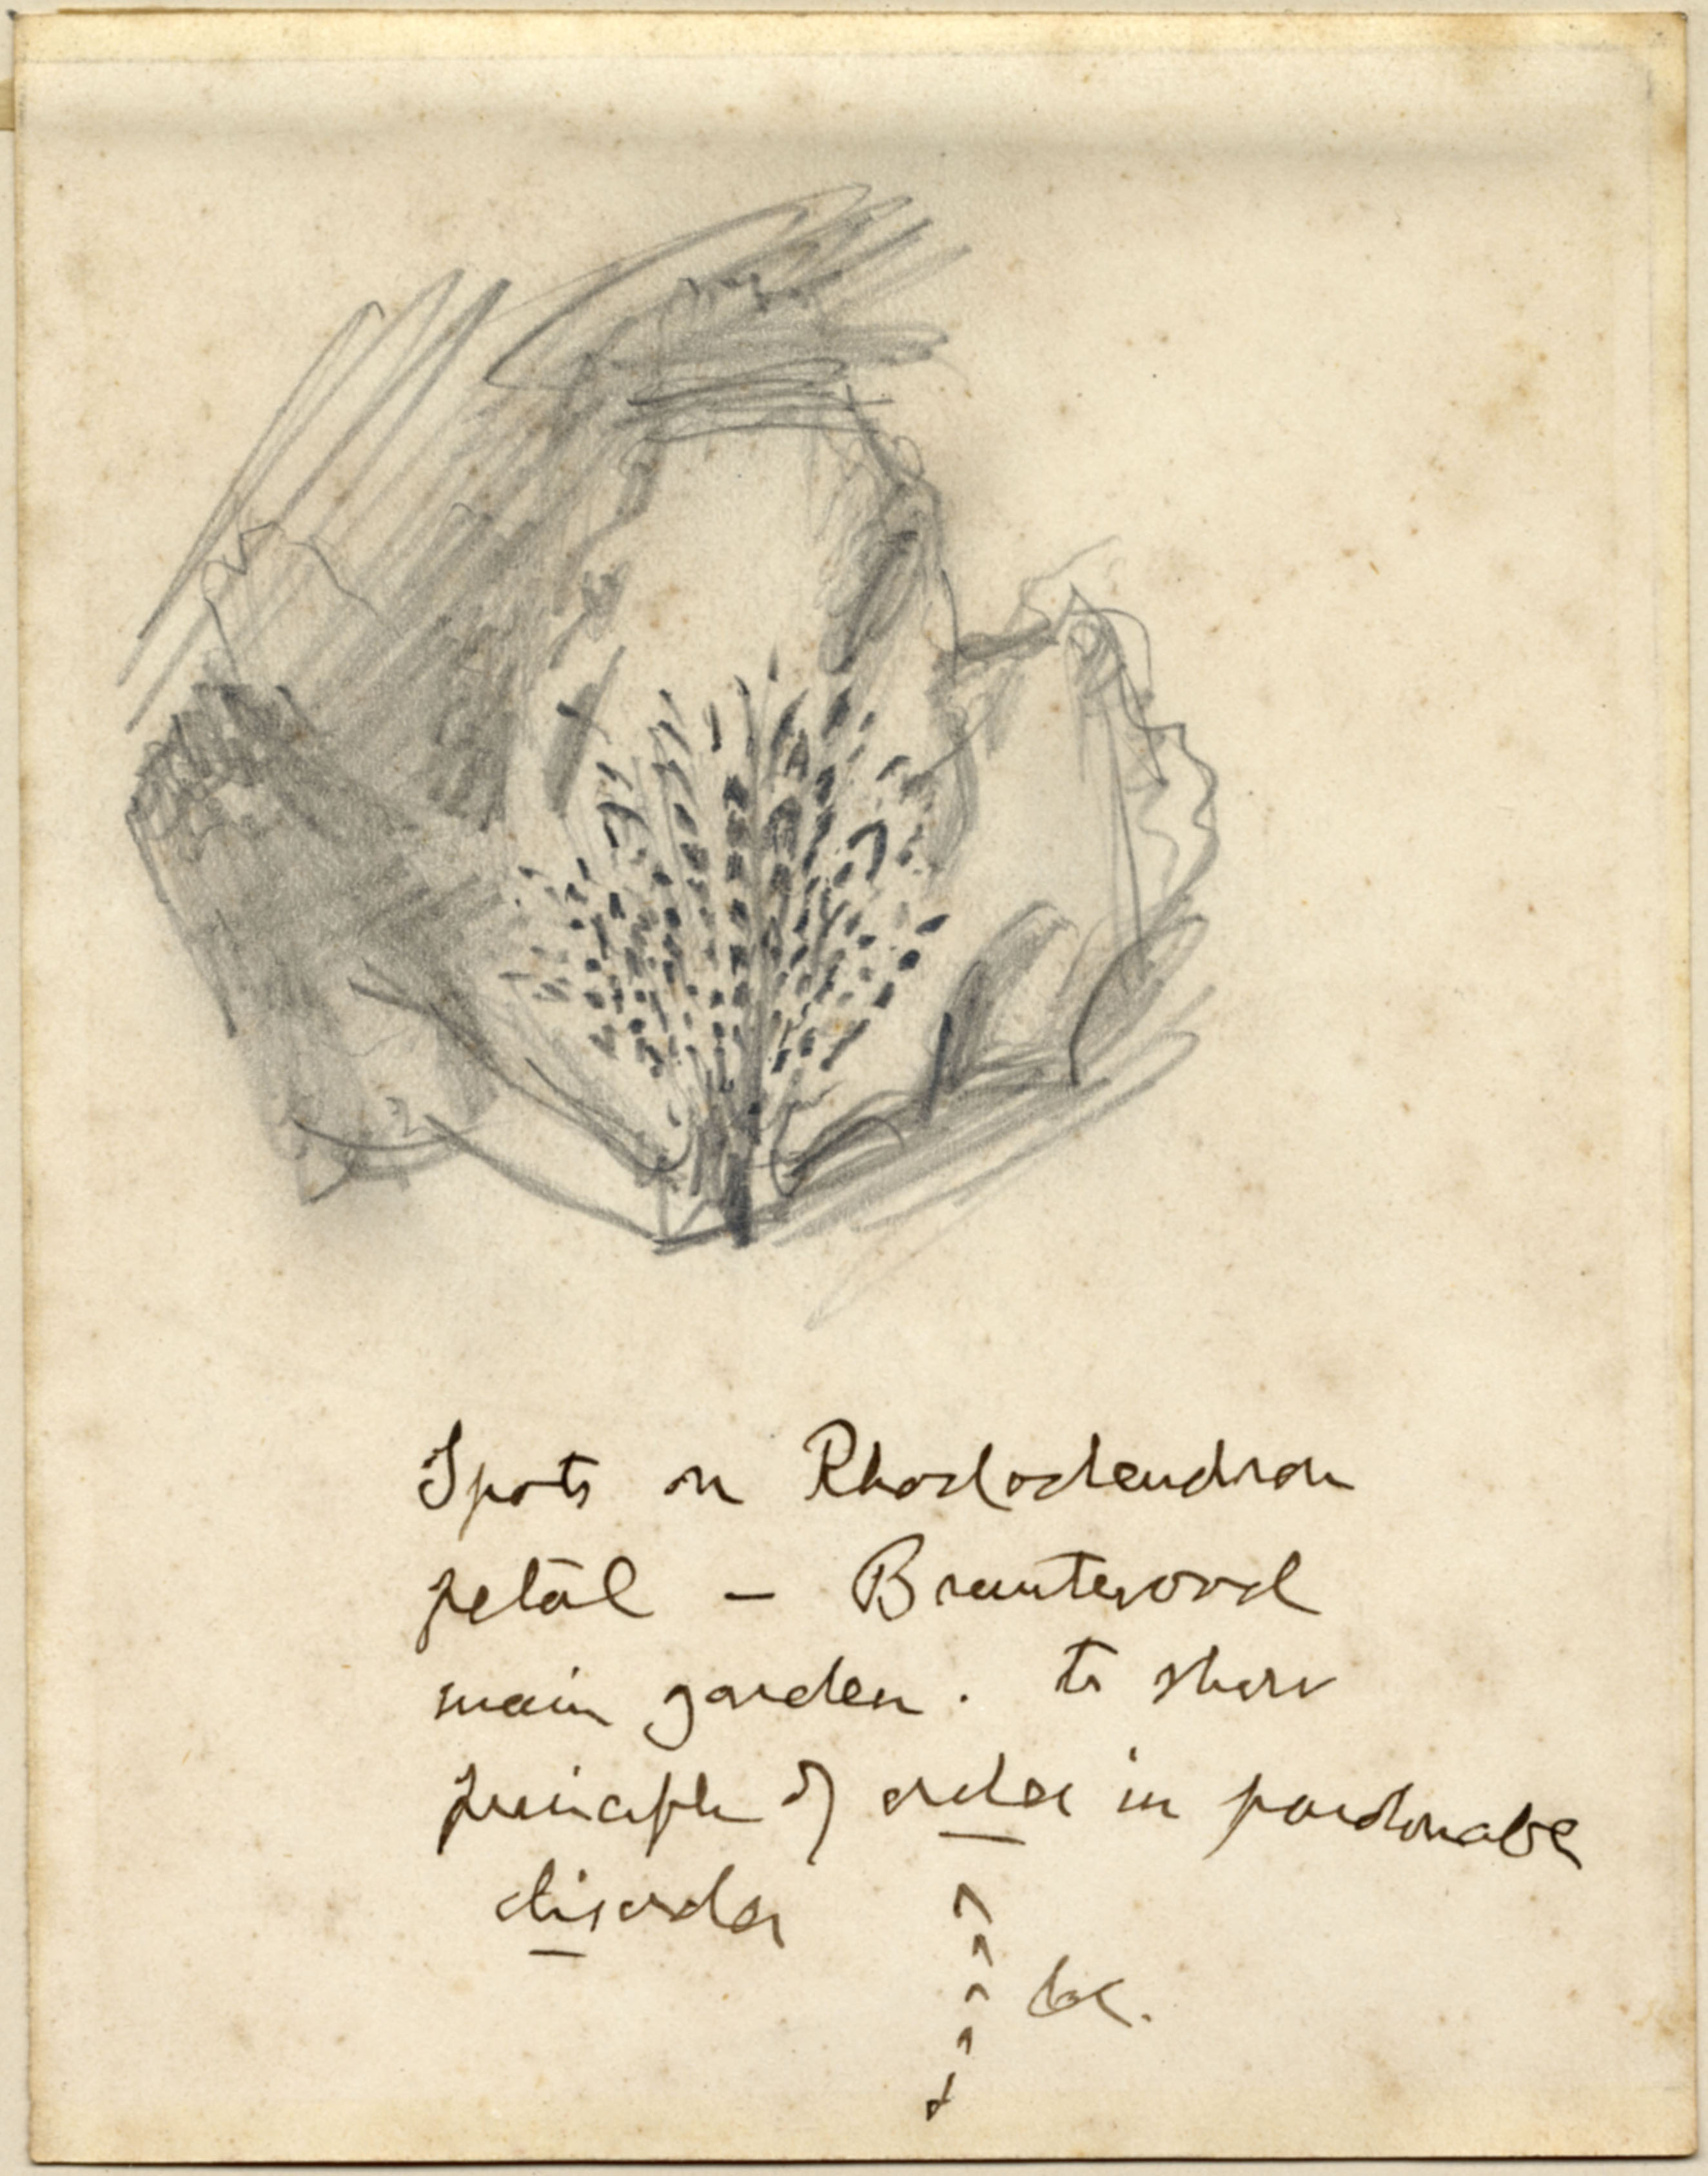 Spots on Rhododendron
petal – Brantwood
main garden. to show
principle of order in pardonable
disorder
&c.